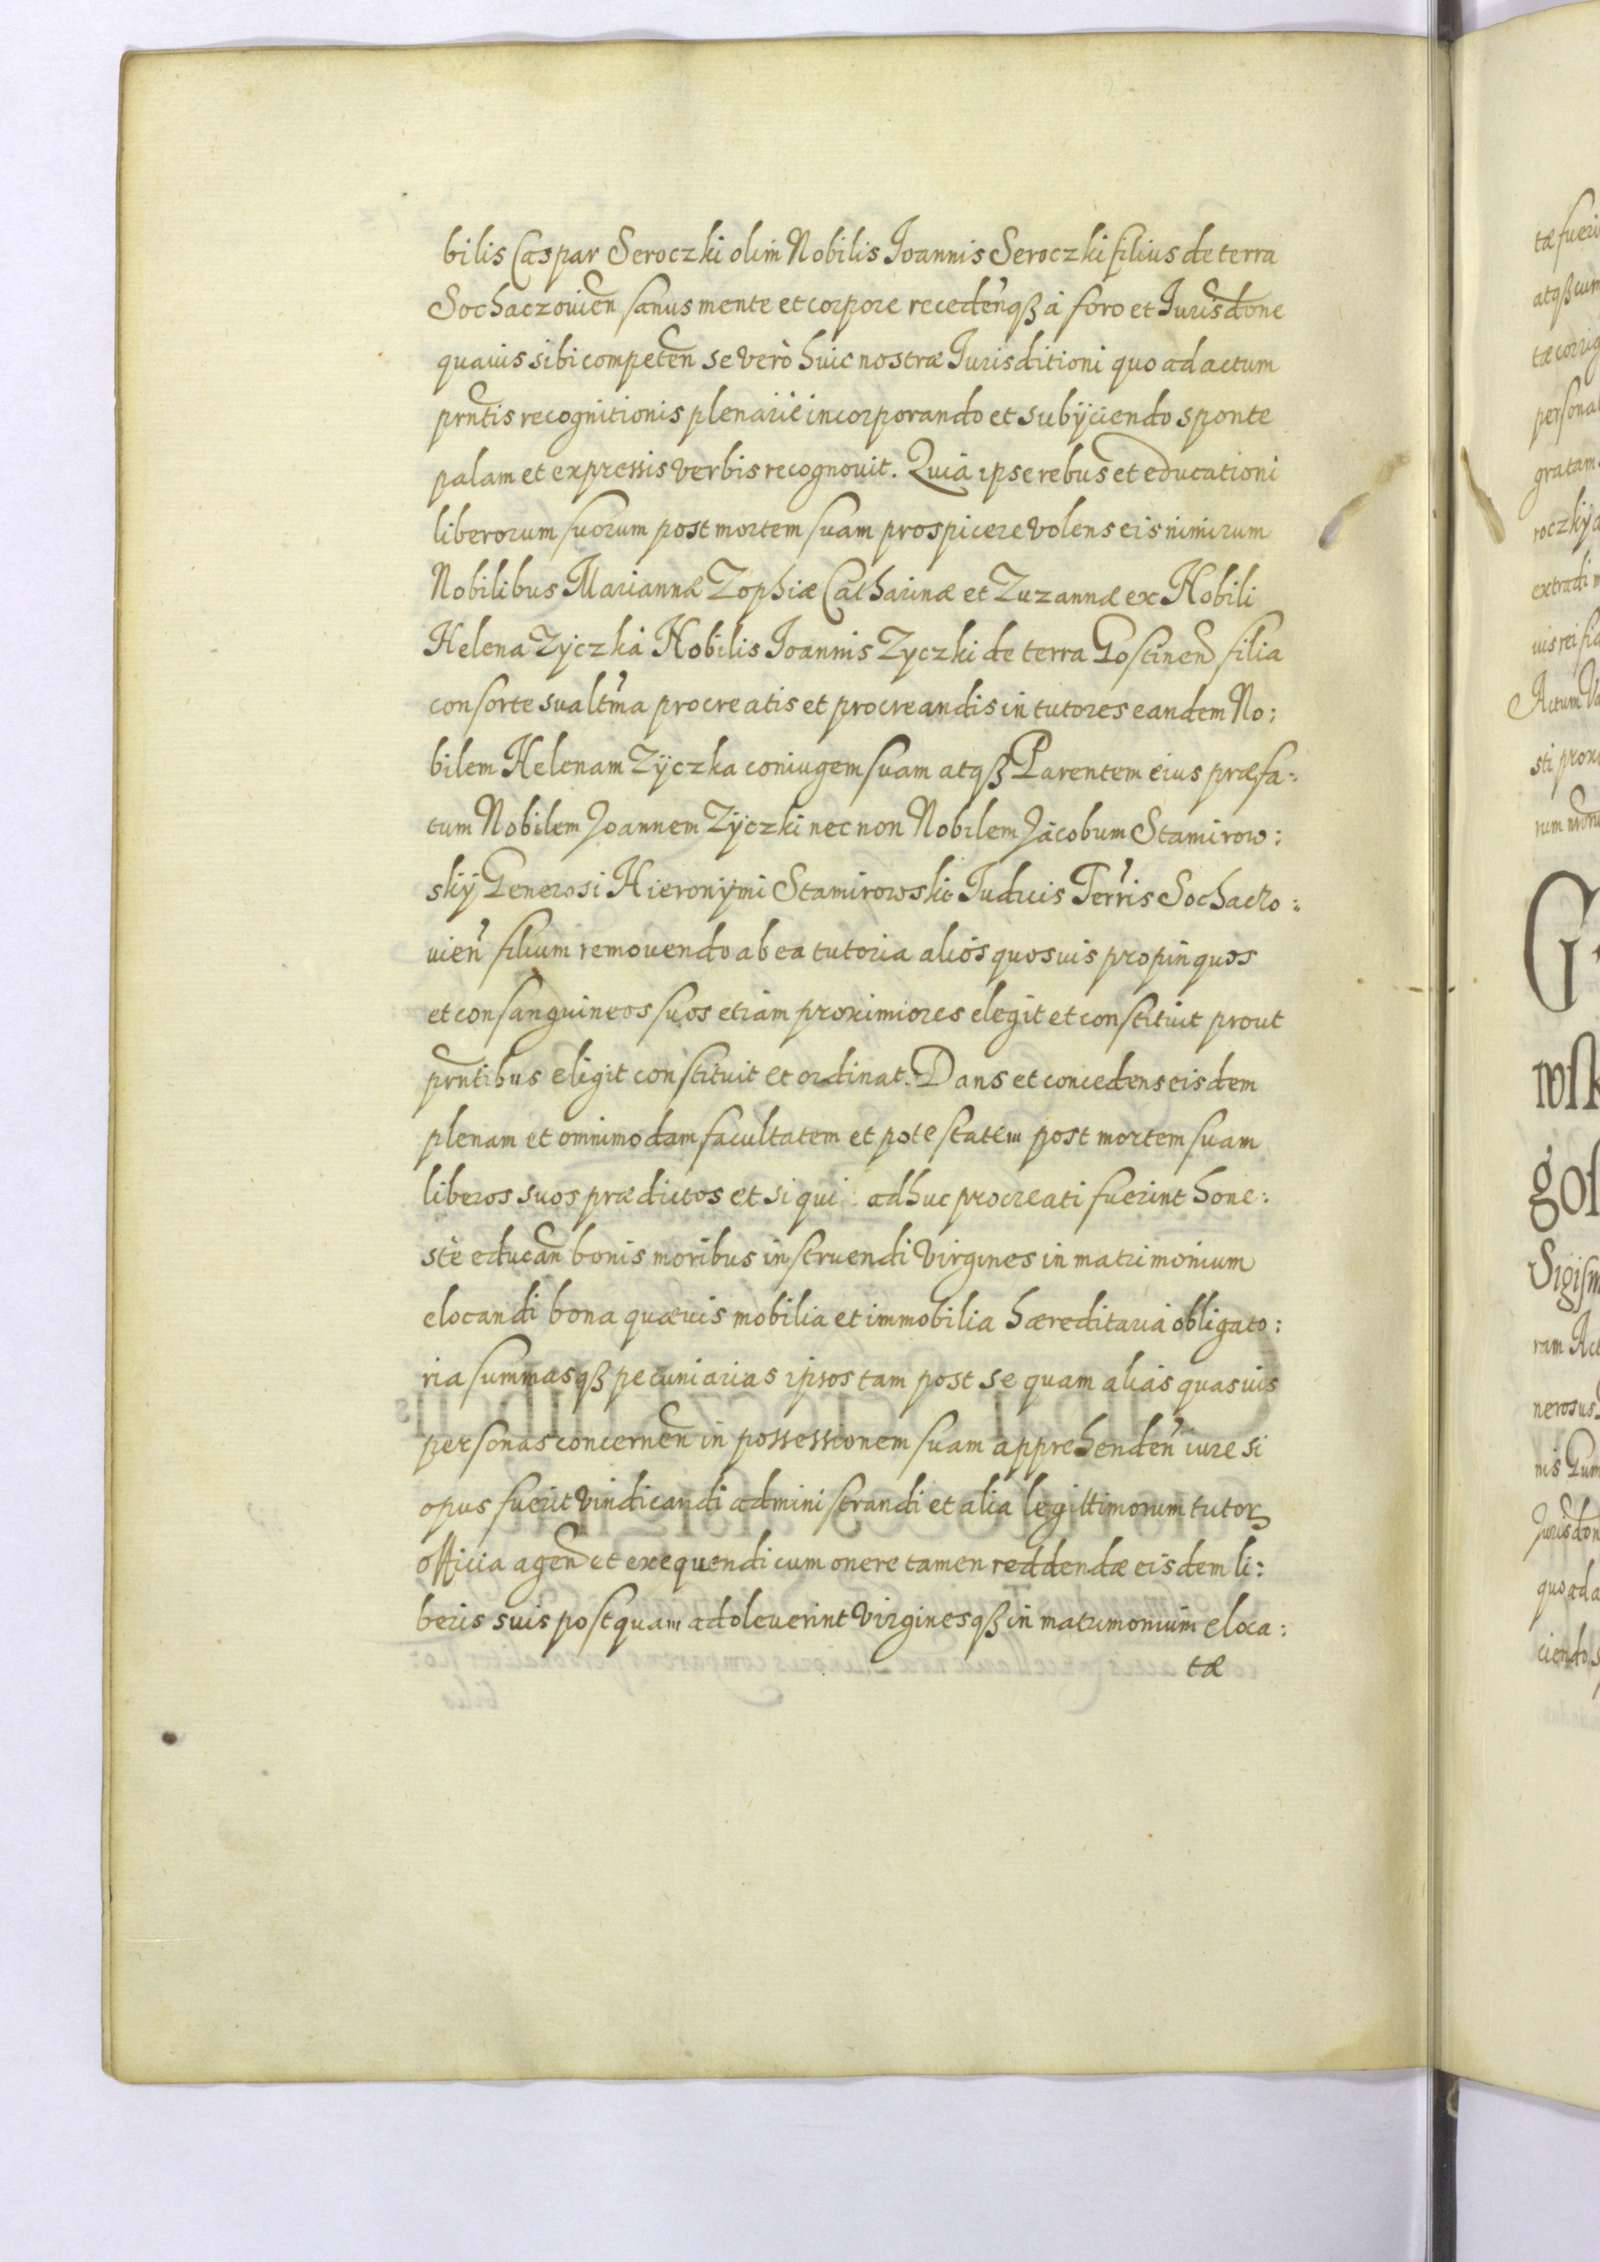 bilis Caspar Seroczki olim Nobilis Ioannis Seroczki filius de terra
Sochaczouien sanus mente et corpore recedenqß à foro et Iurisdone
quauis sibi competen se verò huic nostræ Iurisditioni quo ad actum
prntis recognitionis plenariè incorporando et subijciendo sponte
palam et expressis verbis recognouit. Quia ipse rebus et educationi
liberorum suorum post mortem suam prospicere volens eis nimirum
Nobilibus Mariannæ Zophiæ Catharinæ et Zuzannæ ex Nobili
Helena Zyczka Nobilis Ioannis Zyczki de terra Gostinen filia
consorte sua ltma procreatis et procreandis in tutores eandem No:
bilem Helenam Zÿczka coniugem suam atqß Parentem eius præfa:
tum Nobilem Joannem Zÿczki nec non Nobilem Jacobum Stamirow:
skÿ Generosi Hieronÿmi Stamirowski Iudicis Terris Sochaczo:
uien filium remouendo ab ea tutoria aliós quosuis propinquos
et consanguineos suos etiam proximiores elegit et constituit prout
prntibus eligit constituit et ordinat. Dans et concedens eisdem
plenam et omnimodam facultatem et potestatem post mortem suam
liberos suos prædictos et si qui adhuc procreati fuerint hone:
stè educan bonis moribus instruendi Virgines in matrimonium
elocandi bona quæuis mobilia et immobilia hæreditaria obligato:
ria summasqß pecuniarias ipsos tam post se quam alias quasuis
personas concernen in possessionem suam apprehenden iure si
opus fuerit Vindicandi administrandi et alia legittimorum tutorꝝ
officia agen et exequendi cum onere tamen reddendæ eisdem li:
beris suis postquam adoleuerint Virginesqß in matrimonium eloca:
tæ
tæ fueri
atqß cum
tæ corrig
persona
gratam
roczkÿ
extradi
uis rei
Actum
sti prox
rum
G
wsk
gos
Sigism
ram Act
nerosus
nis Gum
Jurisdon
quo ad a
ciendo s